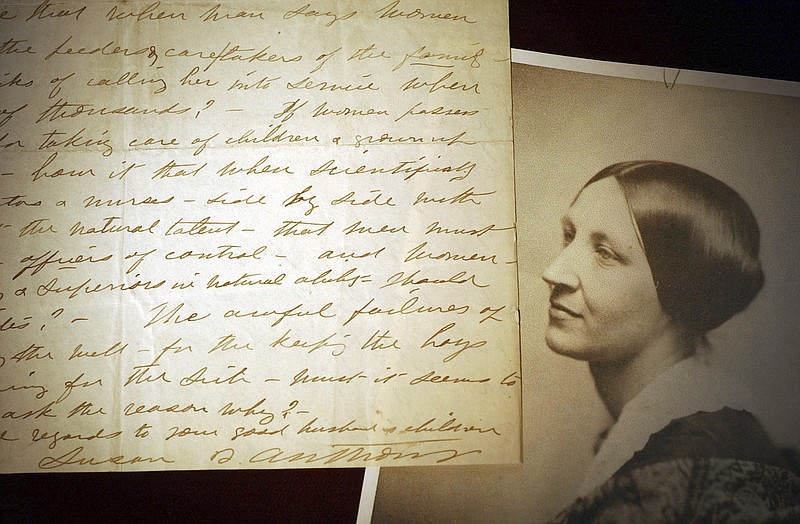 e that when man says women
the feeders & caretakers of the family
of calling her into service when
of thousands? - If women possess
for taking care of children & grown up
- how it that when scientifically
a nurses - side by side with
the natural talent - that men must
officers of control - and women -
& superiors in natural ability - should
? - The awful failures of
the well - for the keep'g the boys
ing for the sick - must it seems to
ask the reason why? -
e regards to your good husband & children
Susan B. Anthony